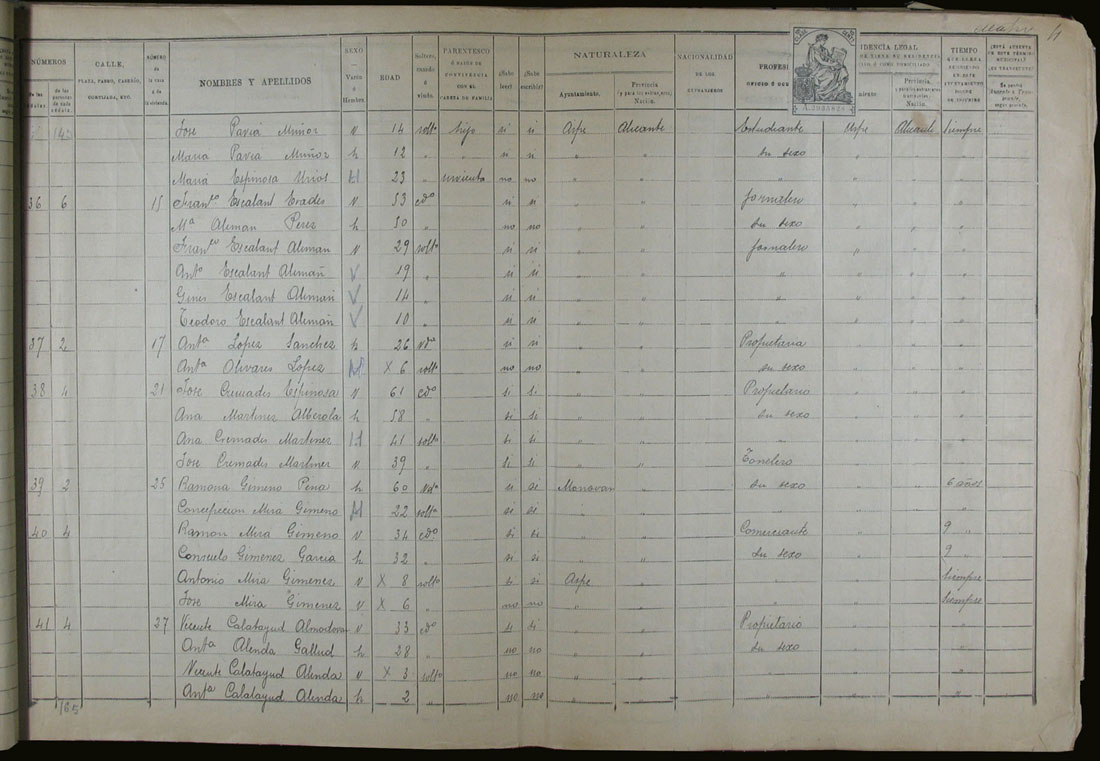 NÚMEROS
de las cédulas
CALLE,
PLAZA, PASEO, CASERÍO, CORTIJADA, ETC.
NÚMERO de la casa ó de la vivienda.
NOMBRES Y APELLIDOS
SEXO — Varón ó Hembra
EDAD
Soltero, casado ó viudo.
PARENTESCO Ó RAZÓN DE CONVIVENCIA CON EL CABEZA DE FAMILIA
¿Sabe leer?
¿Sabe escribir?
NATURALEZA
Ayuntamiento.
Provincia (y para los extranjeros) Nación.
NACIONALIDAD DE LOS EXTRANJEROS
PROFESI
OFICIO Ó
IDENCIA LEGAL
Provincia, y para los extranjeros Nación.
TIEMPO
A.7938821
14
143 Jose Pavia Muñoz v 14 solto hijo si si Aspe Alicante Estudiante Aspe Alicante siempre
Maria Pavia Muñoz h 12 " " si si " " su sexo " " "
Maria Espinosa Urios H 23 " sirvienta no no " " " " " "
36 6 15 Franco Escalant Erades v 53 cdo si si " " Jornalero " " "
Ma Aleman Perez h 50 " no no " " su sexo " " "
Franco Escalant Aleman v 29 solto si si " " Jornalero " " "
Anto Escalant Alemañ V 19 " si si " " " " " "
Gines Escalant Alemañ V 14 " si si " " " " " "
Teodoro Escalant Alemañ V 10 " si si " " " " " "
37 2 17 Anta Lopez Sanchez h 26 vda si si " " Propietaria " " "
Anta Olivares Lopez H X 6 solto no no " " su sexo " " "
38 4 21 Jose Cremades Espinosa v 61 cdo si si " " Propietario " " "
Ana Martinez Alberola h 58 " si si " " su sexo " " "
Ana Cremades Martinez H 41 solto si si " " " " " "
Jose Cremades Martinez v 39 " si si " " Tonelero " " "
39 2 25 Ramona Gimeno Pina h 60 vda si si Monovar " su sexo " " 6 años
Concepcion Mira Gimeno H 22 solto si si " " " " " "
40 4 Ramon Mira Gimeno v 34 cdo si si " " Comerciante " " 9 "
Consuelo Gimenez Garcia h 32 " si si " " su sexo " " 9 "
Antonio Mira Gimenez v X 8 solto si si Aspe " " " " siempre
Jose Mira Gimenez v X 6 " no no " " " " " siempre
41 4 27 Vicente Calatayud Almodovar v 33 cdo si si " " Propietario " " "
Anta Alenda Gallud h 28 " no no " " su sexo " " "
Vicente Calatayud Alenda v X 3 solto no no " " " " " "
Anta Calatayud Alenda h 2 " no no " " " " " "
165